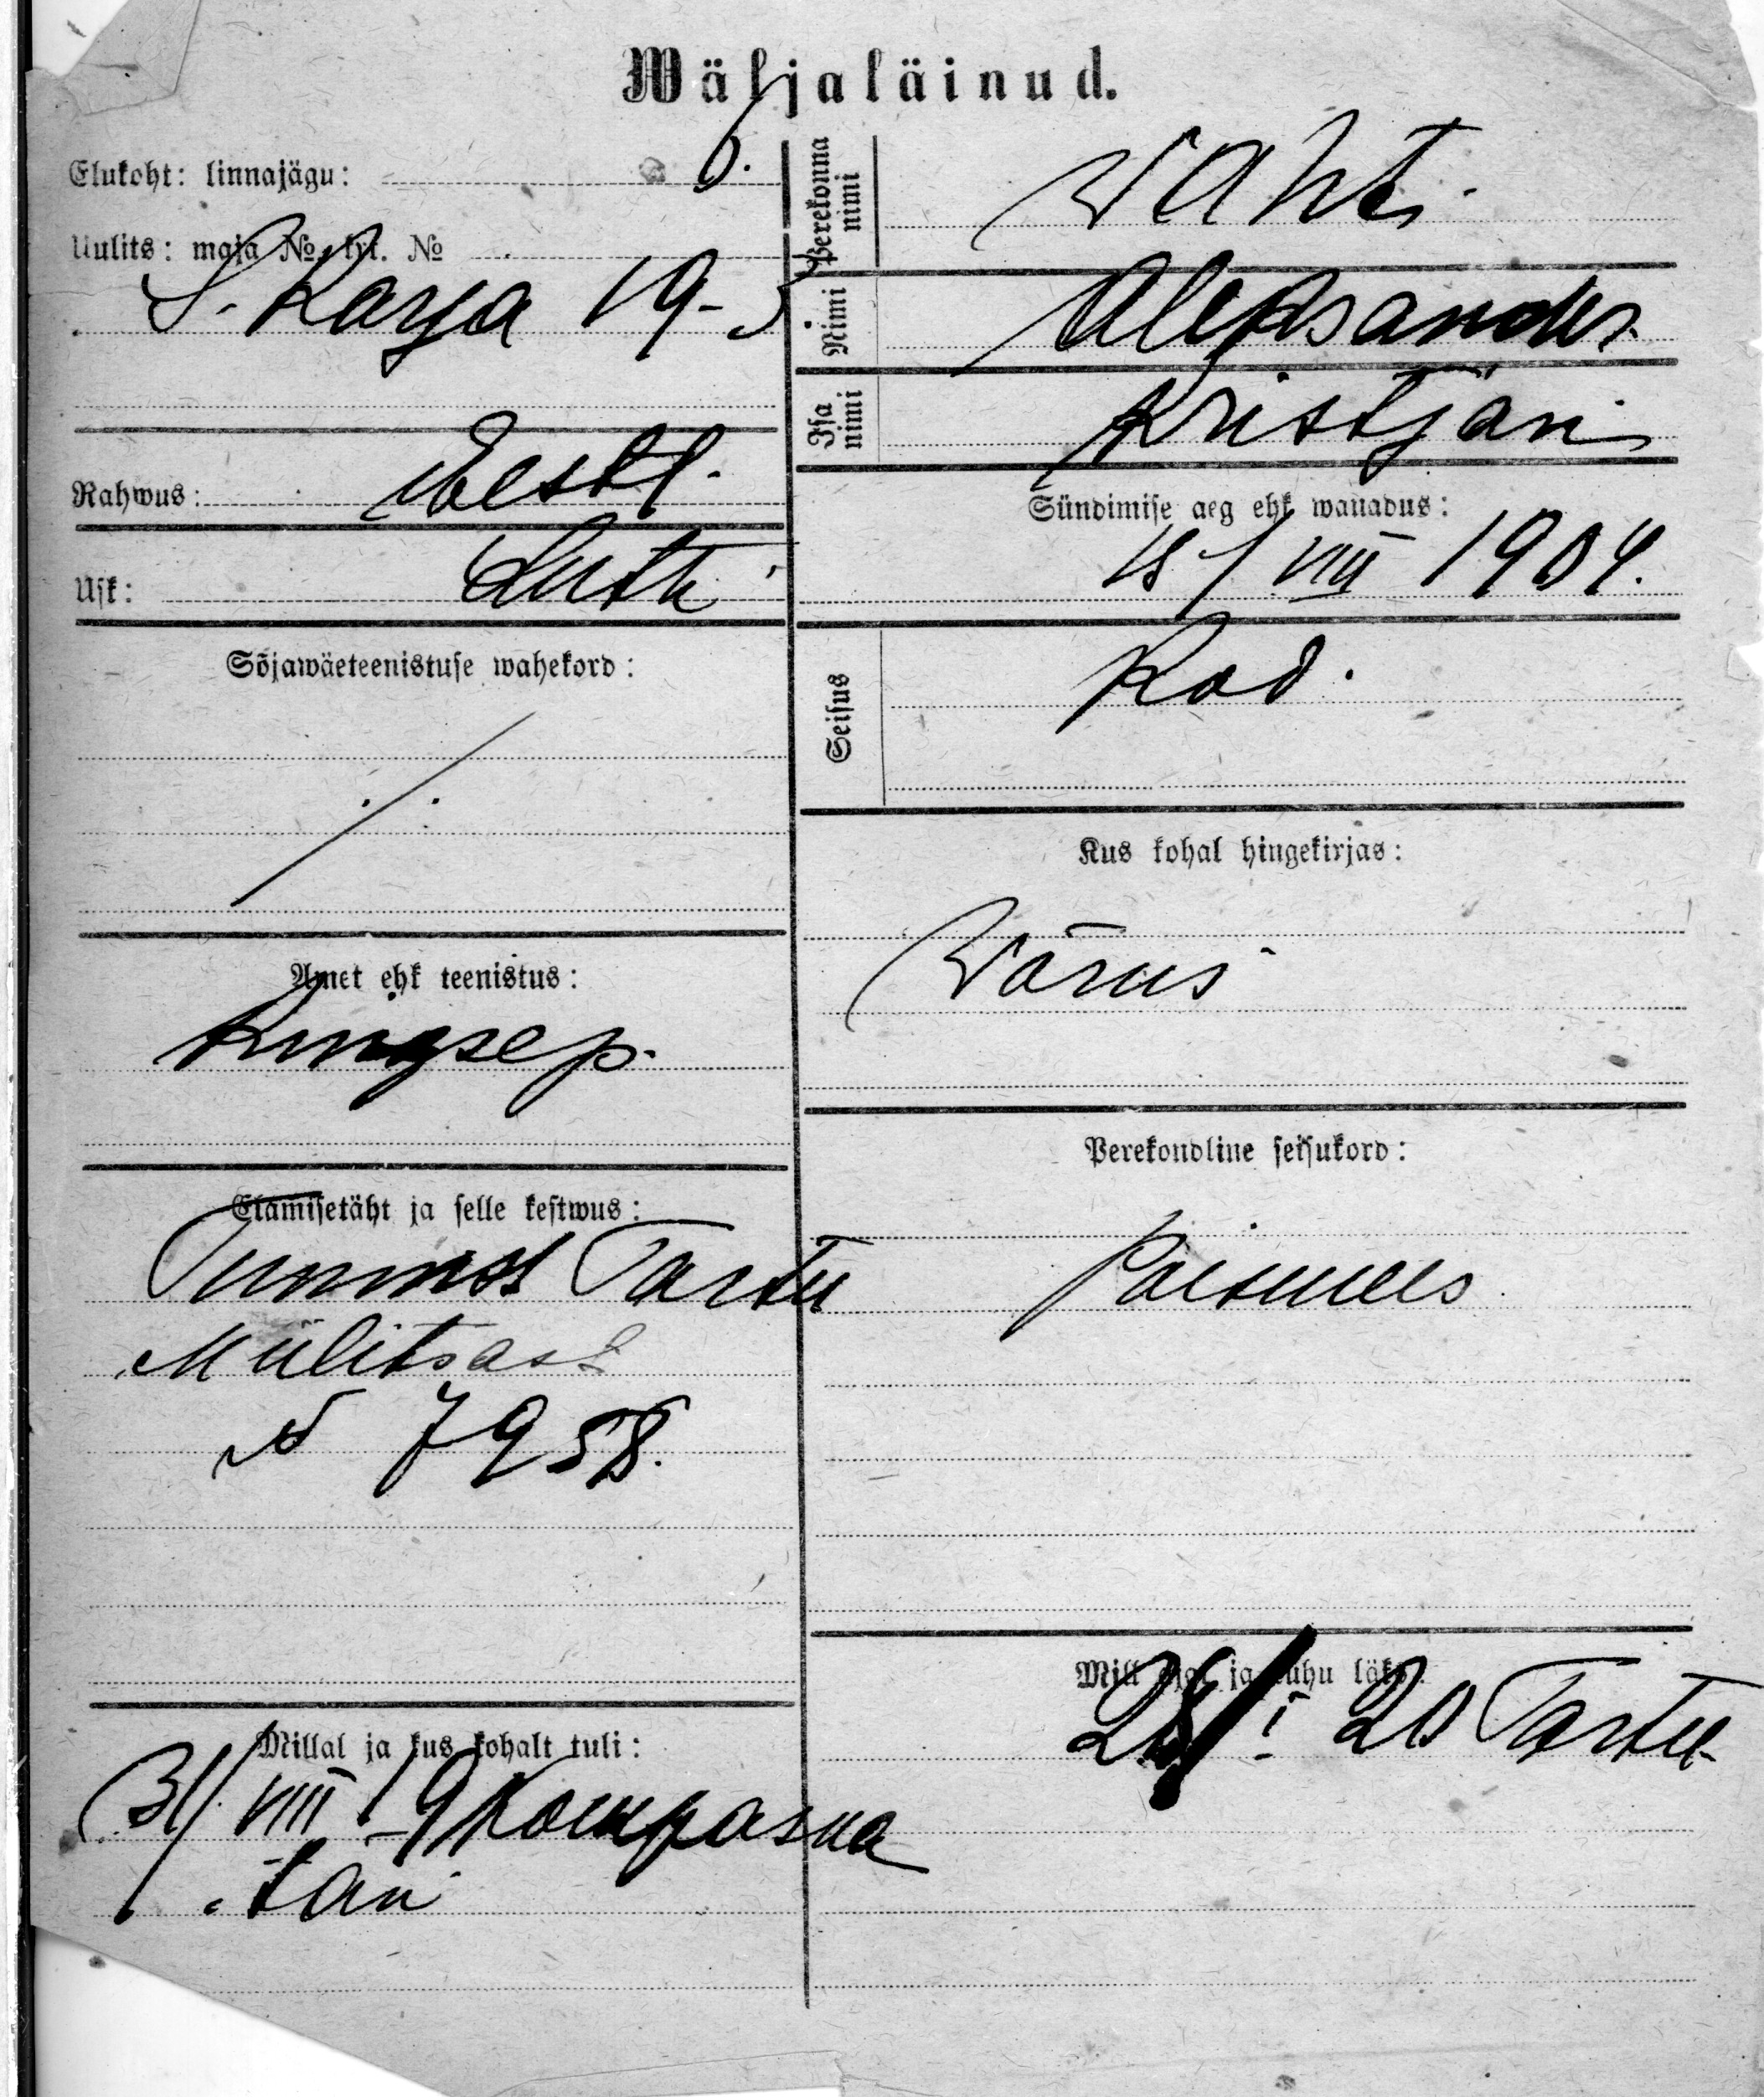 Wäljaläinud.
Elukoht: linnajägu: 6.
Uulits: maja № krt. №
S. Karja 19-5
Rahwus: Eestl.
Usk: Luth
Sõjawäeteenistuse wahekord:
Amet ehk teenistus:
Kingsep.
Elamisetäht ja selle kestwus:
Tunnist Tartu
Miilitsast
№ 7958.
Millal ja kus kohalt tuli:
31/VIII 19 Kompasna
tän
Perekonna nimi
Waht.
Nimi
Aleksander.
Isa nimi
Kristjan
Sündimise aeg ehk wanadus:
18/VIII 1904.
Seisus
Kod.
Kus kohal hingekirjas:
Wõrus
Perekondline seisukord:
Poismees
Mill ajal ja kuhu läks:
I 20 Tartu